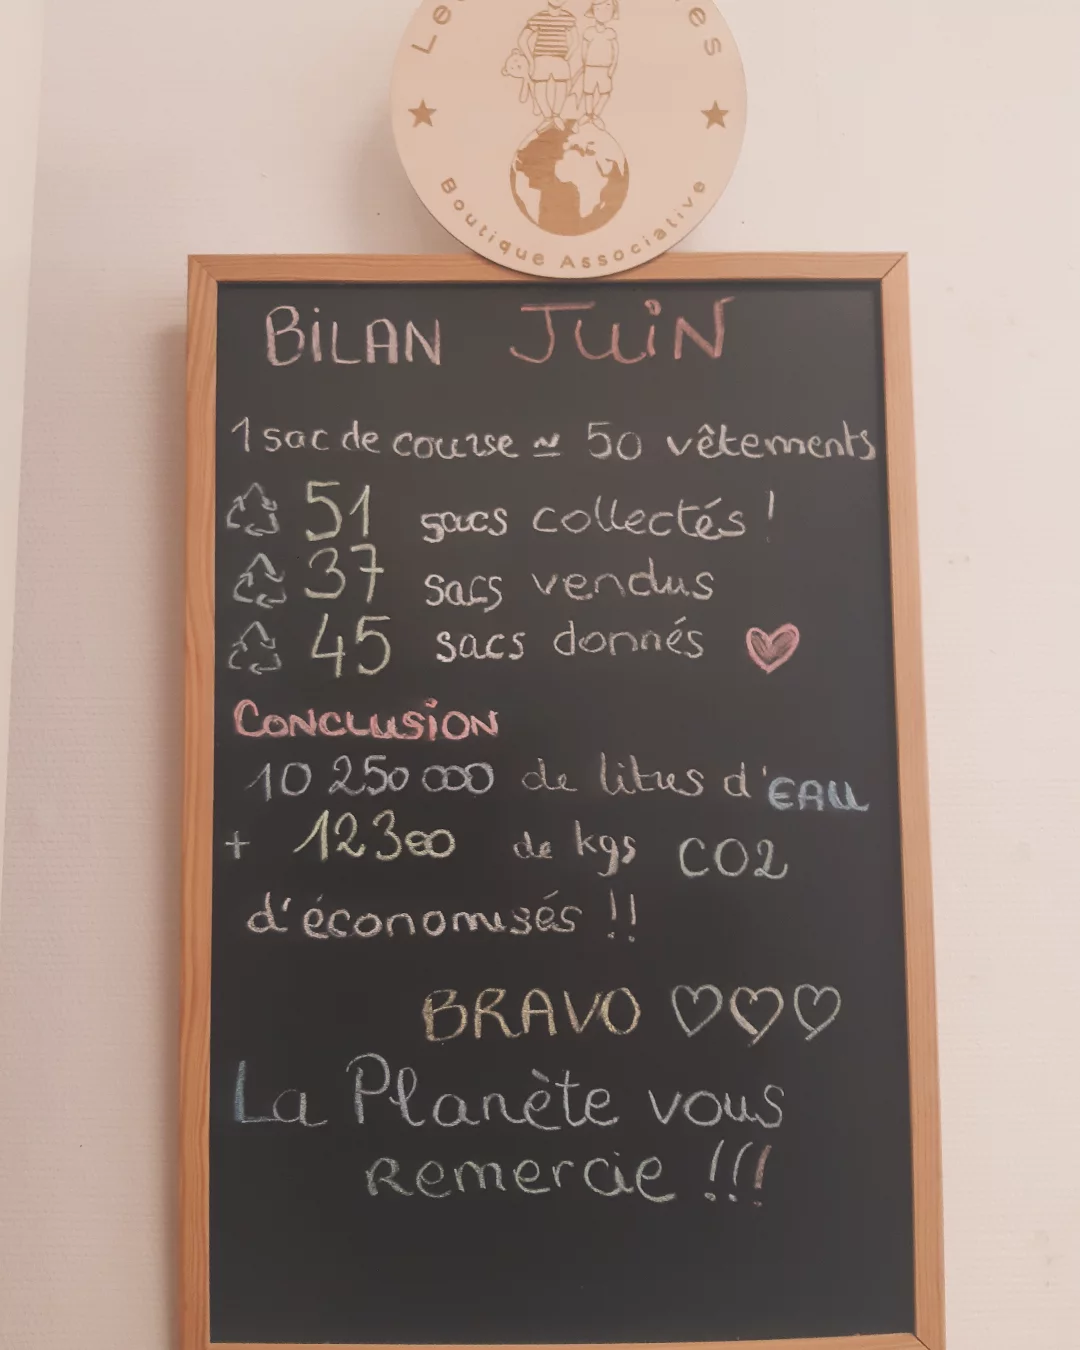 Boutique Associative
BiLAN JuiN
1 sac de course ≃ 50 vêtements
51 sacs collectés !
37 sacs vendus
45 sacs donnés
CONCLUSiON
10 250 000 de litres d'EAU
+ 12300 de kgs CO2
d'économisés !!
BRAVO
La Planète vous
Remercie !!!